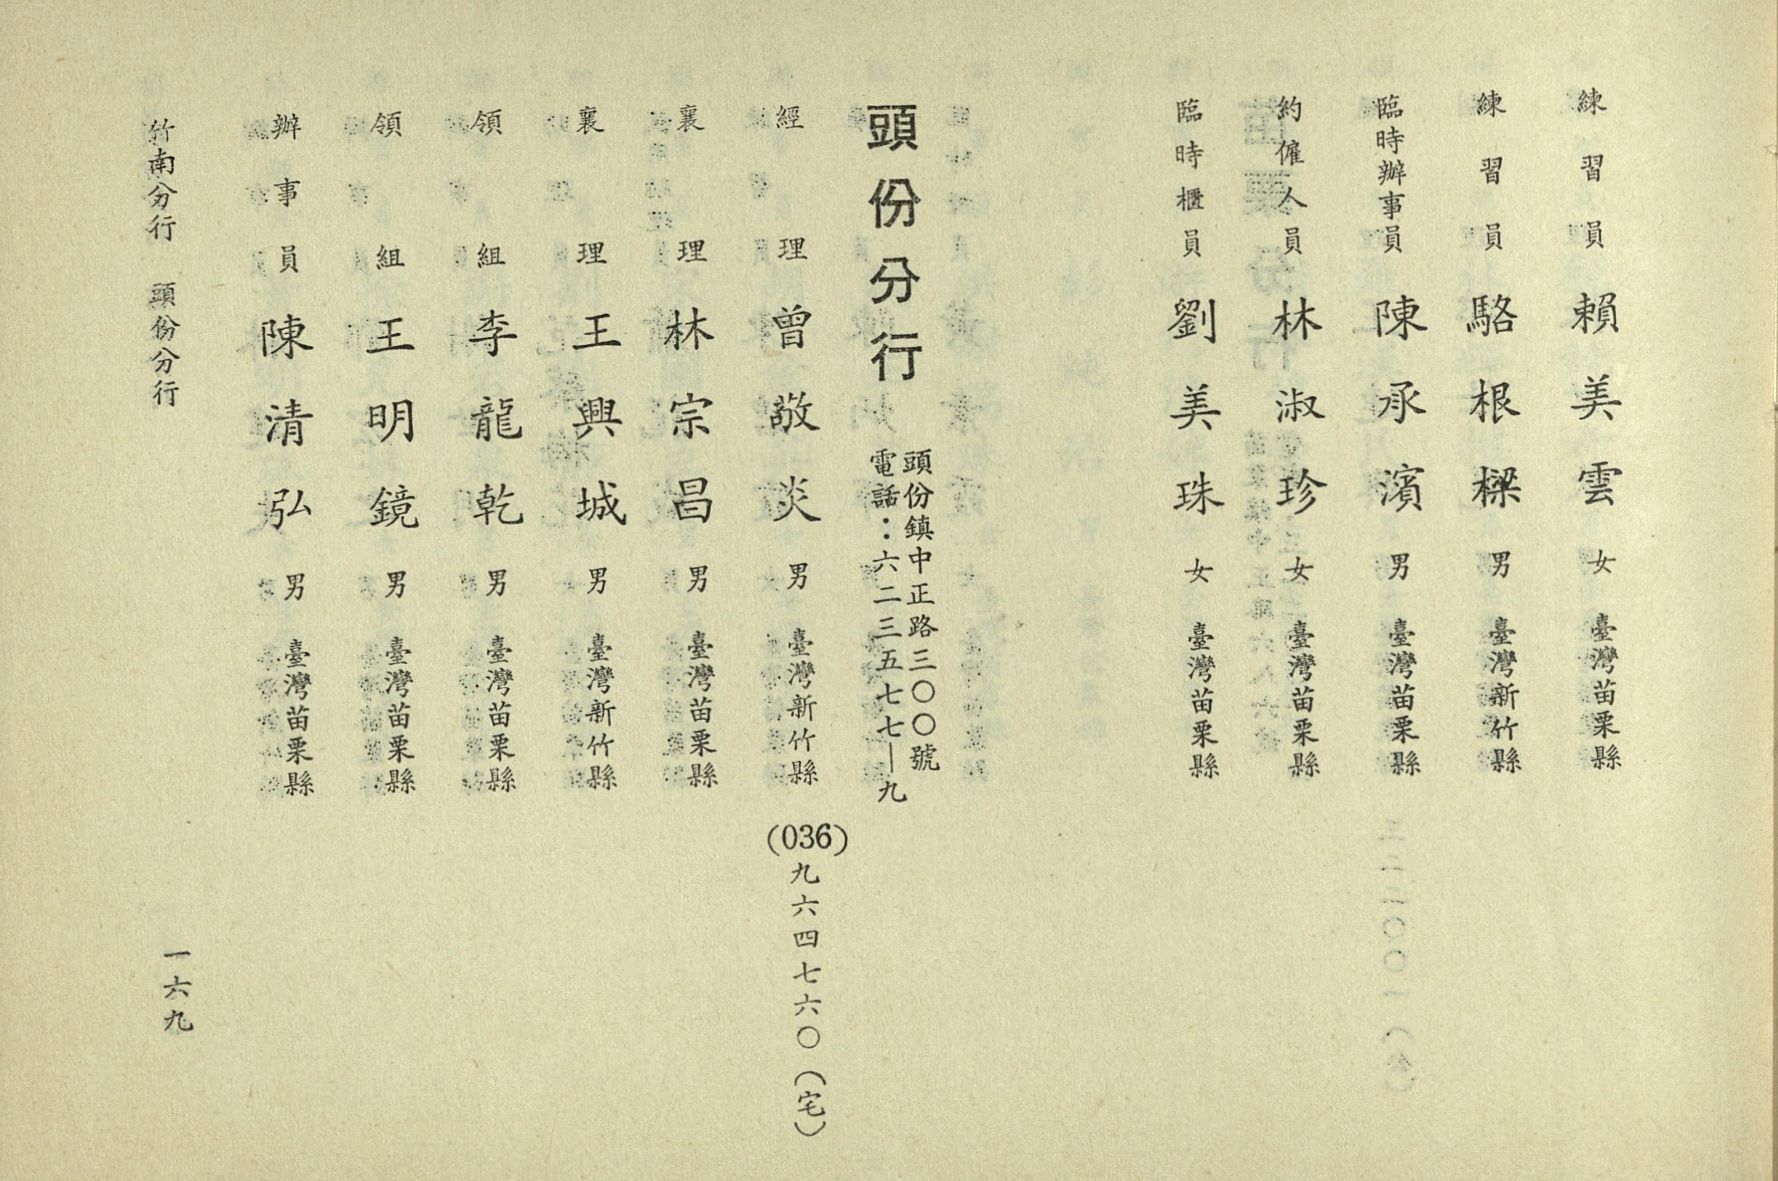 練習員 賴美雲 女 臺灣苗栗縣
練習員 駱根樑 男 臺灣新竹縣
臨時辦事員 陳承濱 男 臺灣苗栗縣
約僱人員 林淑珍 女 臺灣苗栗縣
臨時櫃員 劉美珠 女 臺灣苗栗縣
頭份分行
頭份鎮中正路三〇〇號
電話：六二三五七七—九
經理 曾敬炎 男 臺灣新竹縣 (036)九六四七六〇（宅）
襄理 林宗昌 男 臺灣苗栗縣
襄理 王興城 男 臺灣新竹縣
領組 李龍乾 男 臺灣苗栗縣
領組 王明鏡 男 臺灣苗栗縣
辦事員 陳清弘 男 臺灣苗栗縣
竹南分行 頭份分行
一六九